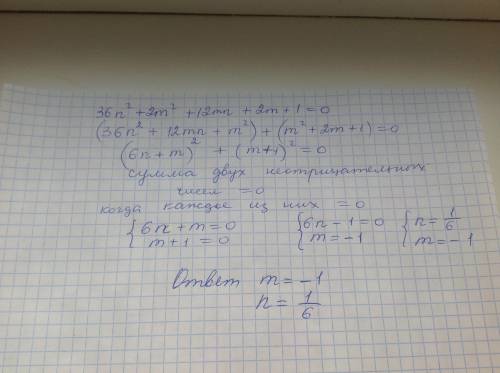 36n² + 2m² + 12mn + 2m + 1 = 0
(36n² + 12mn + m²) + (m² + 2m + 1) = 0
(6n + m)² + (m + 1)² = 0
сумма двух неотрицательных
чисел = 0
когда каждое из них = 0
{ 6n + m = 0 { 6n - 1 = 0 { n = 1/6
{ m + 1 = 0 { m = -1 { m = -1
Ответ m = -1
n = 1/6